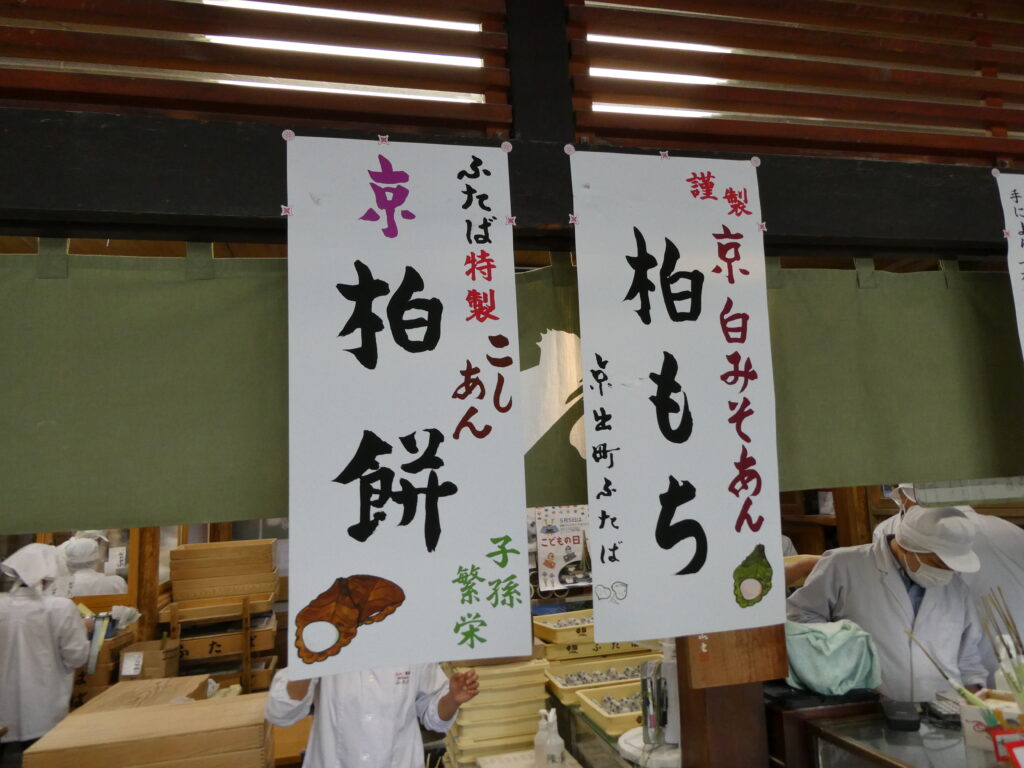 謹製
京白みそあん
柏もち
京出町ふたば
ふたば特製
こしあん
京
柏餅
子孫
繁栄
5月5日は
こどもの日
手に
ふたば